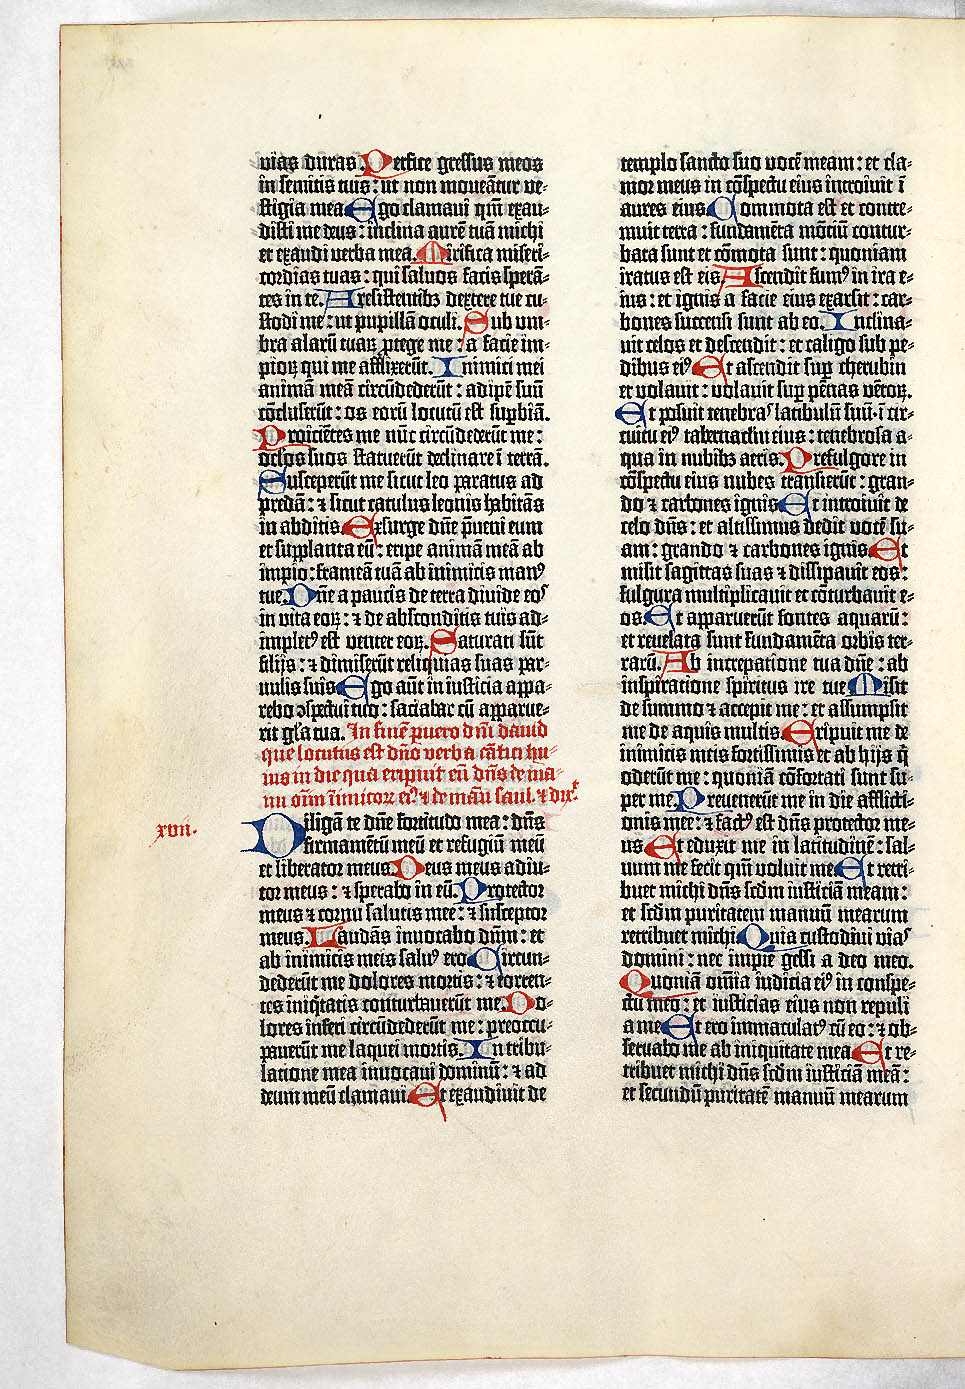 vias duras. Perfice gressus meos
in semitis tuis: ut non moveãtur ve-
stigia mea Ego clamavi qm̃ exau-
disti me deus: inclina aurẽ tuã michi
et exaudi verba mea. Mirifica miseri-
cordias tuas: qui saluos facis sperã-
tes in te. A resistentibꝫ dextere tue cu-
stodi me: ut pupillã oculi. Sub um-
bra alarũ tuaꝝ ꝓtege me: a facie im-
pioꝝ qui me afflixerũt. Inimici mei
animã meã circũdederũt: adipẽ suũ
cõcluserũt: os eorũ locutũ est suꝑbiã.
Proiciẽtes me nũc circũdederũt me:
oc̃los suos statuerũt declinare ĩ terrã.
Susceperũt me sicut leo paratus ad
predã: ⁊ sicut catulus leonis habitãs
in abditis Exurge dñe p̃veni eum
et supplanta eũ: eripe animã meã ab
impio: frameã tuã ab inimicis manꝰ
tue. Dñe a paucis de terra divide eoˢ
in vita eoꝝ: ⁊ de absconditis tuis ad-
impletꝰ est venter eoꝝ. Saturati sũt
filijs: ⁊ dimiserũt reliquias suas par-
vulis suis Ego aũt in iusticia appa-
rebo ɔspectui tuo: saciabor cũ apparue-
rit glĩa tua. In finẽ puero dñi david
que locutus est dño verba cãtici hu-
ius in die qua eripuit eũ dñs de ma-
nu oĩm ĩimicoꝝ eiꝰ ⁊ de mãu saul. ⁊ dix̃.
xvii.
Diligã te dñe fortitudo mea: dñs
firmamẽtũ meũ et refugiũ meũ
et liberator meus. Deus meus adiu-
tor meus: ⁊ sperabo in eũ. Protector
meus ⁊ cornu salutis mee: ⁊ susceptor
meus. Laudãs invocabo dñm: et
ab inimicis meis salvꝰ ero Circun-
dederũt me dolores mortis: ⁊ torren-
tes iniq̃tatis conturbaverũt me. Do-
lores inferi circũdederũt me: preoccu-
paverũt me laquei mortis. In tribu-
latione mea invocavi dominũ: ⁊ ad
deum meũ clamavi Et exaudivit de
templo sancto suo vocẽ meam: et cla-
mor meus in cõspectu eius introivit ĩ
aures eius Commota est et contre-
muit terra: fundamẽta mõtiũ contur-
bata sunt et cõmota sunt: quoniam
iratus est eis Ascendit fumꝰ in ira e-
ius: et ignis a facie eius exarsit: car-
bones succensi sunt ab eo. Inclina-
vit celos et descendit: et caligo sub pe-
dibus eiꝰ Et ascendit suꝑ cherubin
et volavit: volavit suꝑ pẽnas vẽtoꝝ.
Et posuit tenebraˢ latibulũ suũ· ĩ cir-
cuitu eiꝰ tabernaclm̃ eius: tenebrosa a-
qua in nubibꝫ aeris. Prefulgore in
cõspectu eius nubes transierũt: gran-
do ⁊ carbones ignis Et intonuit de
celo dñs: et altissimus dedit vocẽ su-
am: grando ⁊ carbones ignis. Et
misit sagittas suas ⁊ dissipavit eos:
fulgura multiplicavit et cõturbavit e-
os. Et apparuerũt fontes aquarũ:
et revelata sunt fundamẽta orbis ter-
rarũ. Ab increpatione tua dñe: ab
inspiratione spiritus ire tue Misit
de summo ⁊ accepit me: et assumpsit
me de aquis multis. Eripuit me de
inimicis meis fortissimis et ab hijs q̃
oderũt me: quoniã cõfortati sunt su-
per me. Prevenerũt me in die afflicti-
onis mee: ⁊ factꝰ est dñs protector me-
us Et eduxit me in latitudinẽ: sal-
vum me fecit qm̃ voluit me Et retri-
buet michi dñs scd̃m iusticiã meam:
et scd̃m puritatem manuũ mearum
retribuet michi Quia custodivi viaˢ
domini: nec impie gessi a deo meo.
Quoniã om̃ia iudicia eiꝰ in conspe-
ctu meo: et iusticias eius non repuli
a me Et ero immaculatꝰ cũ eo: ⁊ ob-
servabo me ab iniquitate mea Et re-
tribuet michi dñs scd̃m iusticiã meã:
et secundũ puritatẽ manuũ mearum